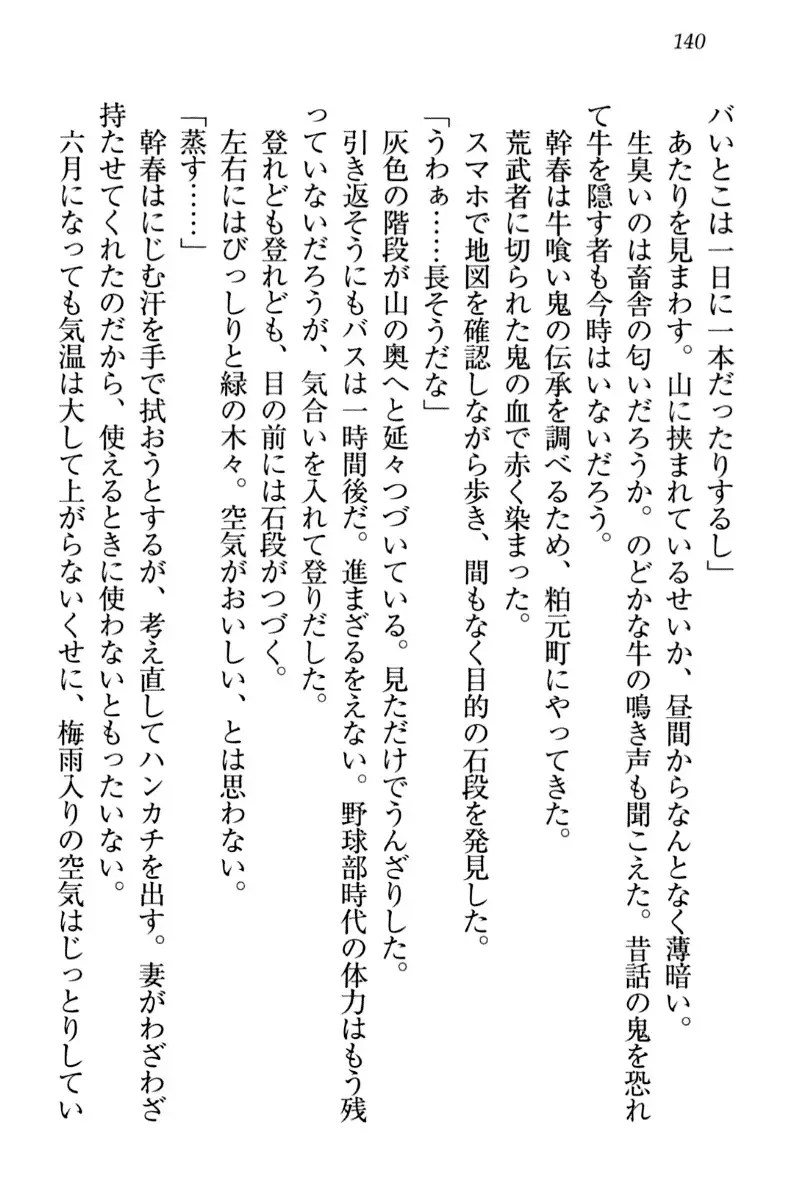 140
バいとこは一日に一本だったりするし」
あたりを見まわす。山に挟まれているせいか、昼間からなんとなく薄暗い。
生臭いのは畜舎の匂いだろうか。のどかな牛の鳴き声も聞こえた。昔話の鬼を恐れ
て牛を隠す者も今時はいないだろう。
幹春は牛喰い鬼の伝承を調べるため、粕元町にやってきた。
荒武者に切られた鬼の血で赤く染まった。
スマホで地図を確認しながら歩き、間もなく目的の石段を発見した。
「うわぁ……長そうだな」
灰色の階段が山の奥へと延々つづいている。見ただけでうんざりした。
引き返そうにもバスは一時間後だ。進まざるをえない。野球部時代の体力はもう残
っていないだろうが、気合いを入れて登りだした。
登れども登れども、目の前には石段がつづく。
左右にはびっしりと緑の木々。空気がおいしい、とは思わない。
「蒸す……」
幹春はにじむ汗を手で拭おうとするが、考え直してハンカチを出す。妻がわざわざ
持たせてくれたのだから、使えるときに使わないともったいない。
六月になっても気温は大して上がらないくせに、梅雨入りの空気はじっとりしてい